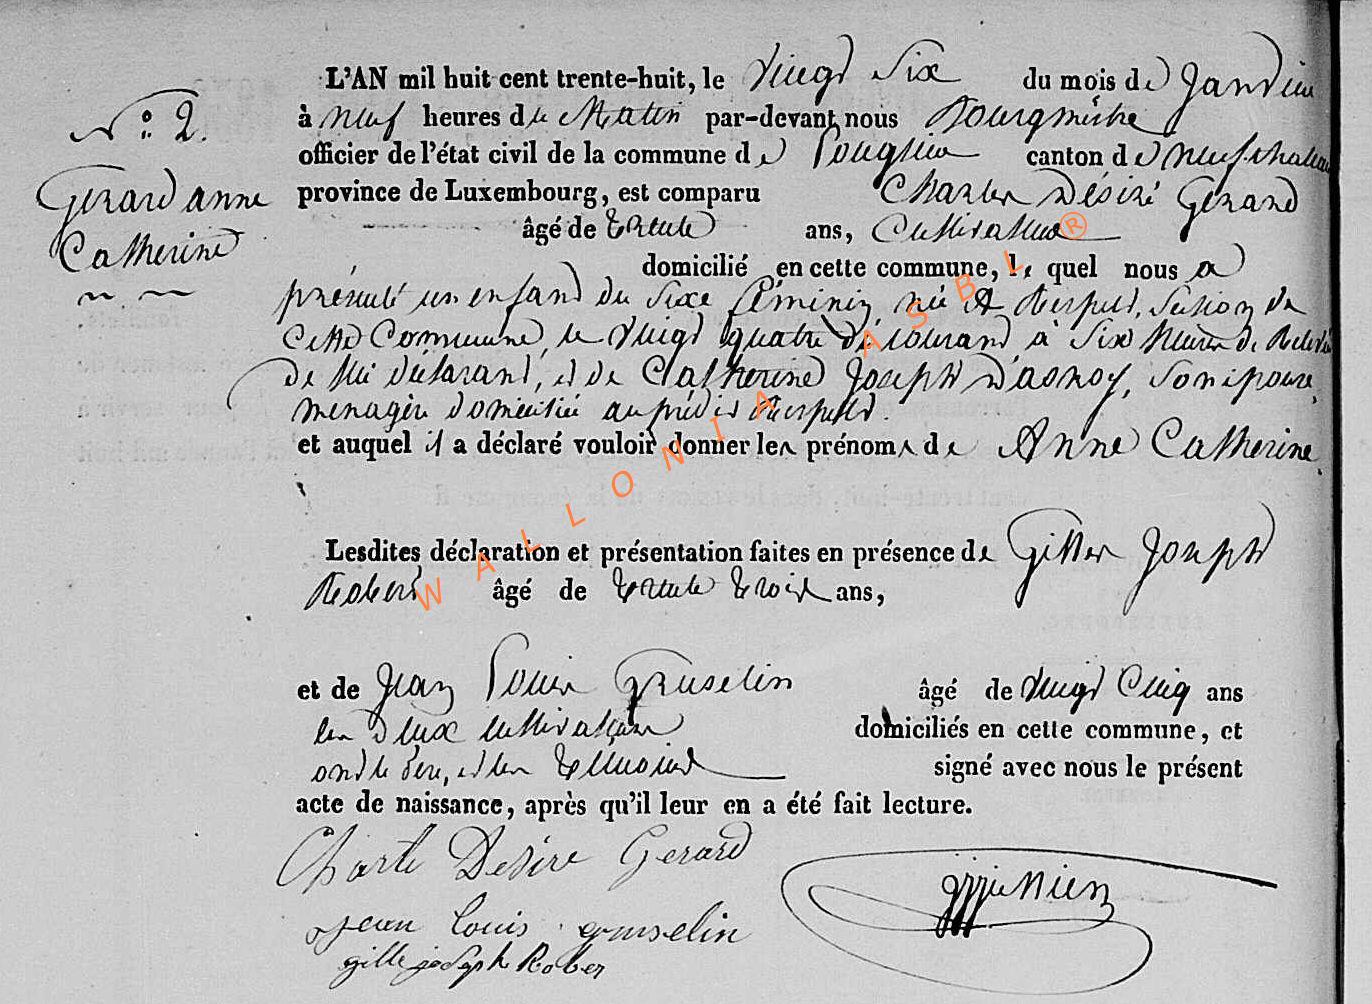 N° 2.
Gerard anne
Catherine
L'AN mil huit cent trente-huit, le Vingt Six du mois de Janvier
à neuf heures du Matin par-devant nous Bourgmestre
officier de l'état civil de la commune de canton de neufchateau
province de Luxembourg, est comparu Charles Désiré Gérard
âgé de trente ans, Cultivateur
domicilié en cette commune, le quel nous a
présenté un enfant du Sexe féminin, née à Verspelt, Section de
Cette Commune, le Vingt quatre du courant, à Six heures de
de lui déclarant, et de Catherine Joseph Dasnoy, Son épouse,
menagère domiciliée au prédit Verspelt.
et auquel il a déclaré vouloir donner les prénoms de Anne Catherine.
Lesdites déclaration et présentation faites en présence de Gilles Joseph
Robert âgé de trente trois ans,
et de Jean Louis Gruselin âgé de vingt Cinq ans
les deux cultivateurs domiciliés en cette commune, et
ont le père, et les témoins signé avec nous le présent
acte de naissance, après qu'il leur en a été fait lecture.
Charle Desire Gerard
jean louis gruselin
gille joseph Rober
WALLONIA ASBL ®